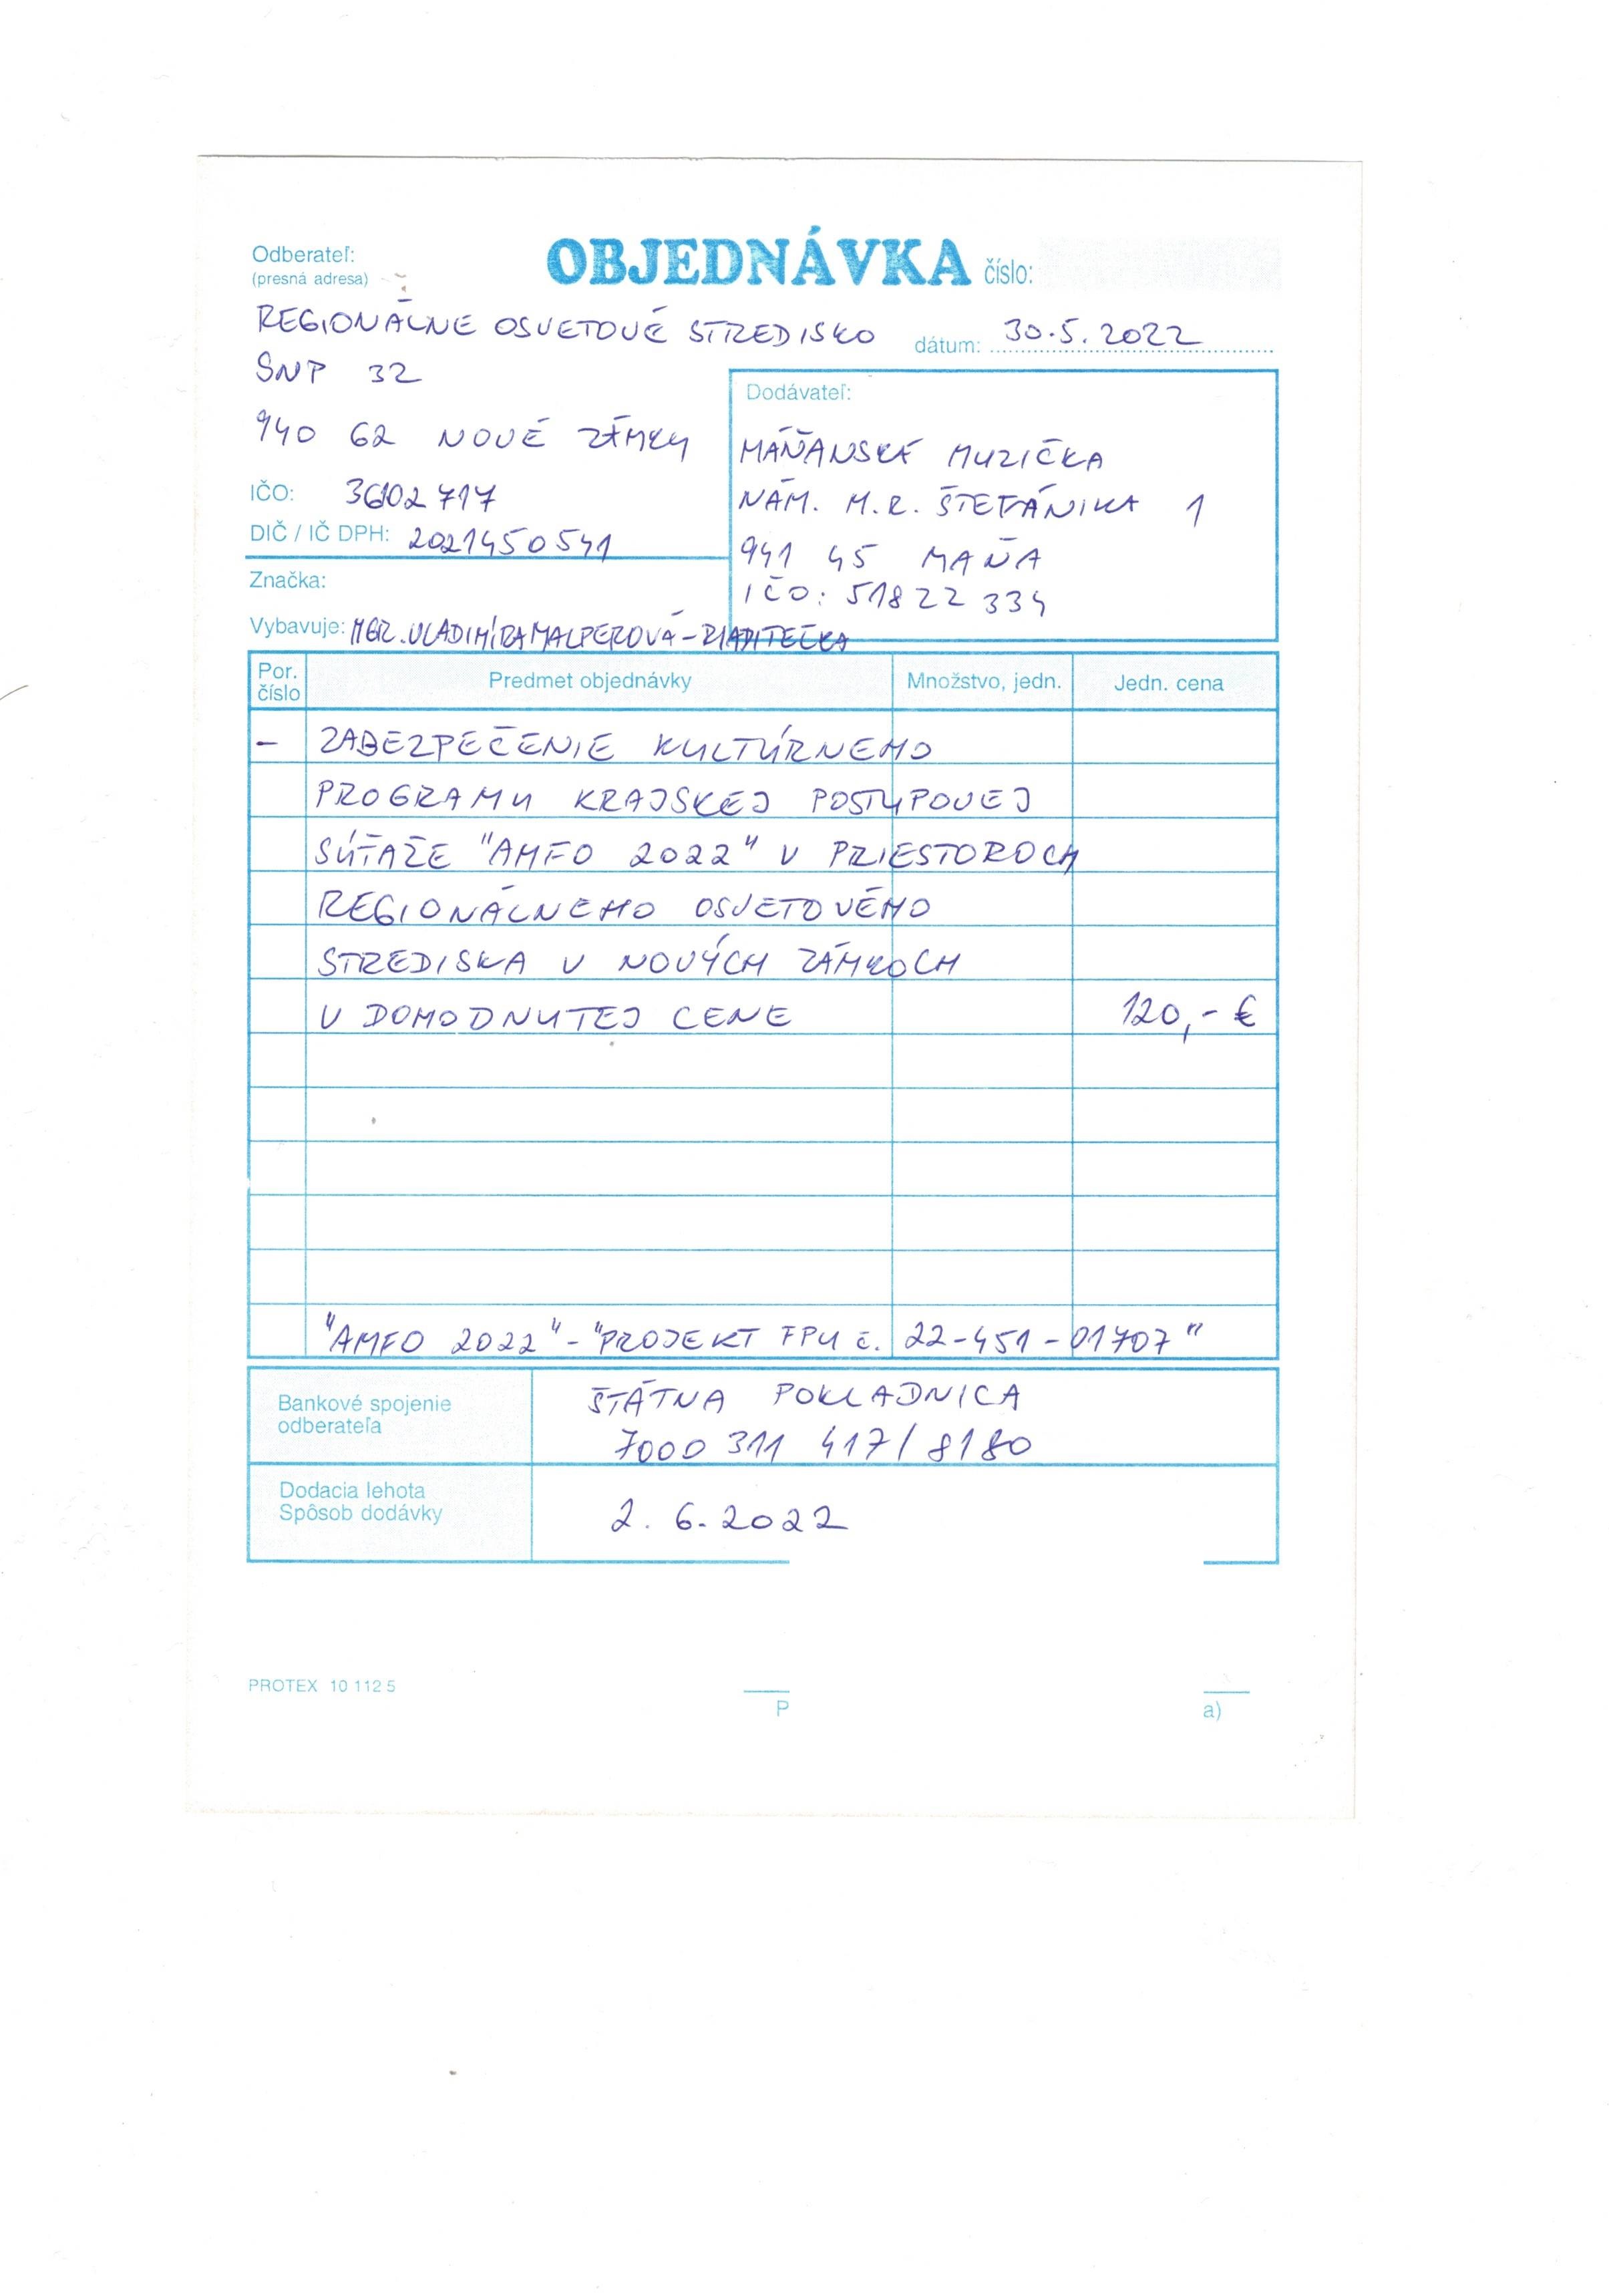 Odberateľ:
(presná adresa)
OBJEDNÁVKA číslo:
REGIONÁLNE OSVETOVÉ STREDISKO
dátum: 30.5.2022
SNP 32
940 62 NOVÉ ZÁMKY
IČO: 36102717
DIČ / IČ DPH: 2021450541
Dodávateľ:
MÁŇANSKÁ MUZIČKA
NÁM. M.R. ŠTEFÁNIKA 1
941 45 MAŇA
IČO: 51822 334
Značka:
Vybavuje: MGR. VLADIMÍRA MALPEROVÁ - RIADITEĽKA
Por. číslo Predmet objednávky Množstvo, jedn. Jedn. cena
- ZABEZPEČENIE KULTÚRNEHO
PROGRAMU KRAJSKEJ POSTUPOVEJ
SÚŤAŽE "AMFO 2022" V PRIESTOROCH
REGIONÁLNEHO OSVETOVÉHO
STREDISKA V NOVÝCH ZÁMKOCH
V DOHODNUTEJ CENE 120,- €
"AMFO 2022" - "PROJEKT FPU č. 22-451-01707"
Bankové spojenie
odberateľa
ŠTÁTNA POKLADNICA
7000 311 417/8180
Dodacia lehota
Spôsob dodávky
2. 6. 2022
PROTEX 10 112 5
P
a)